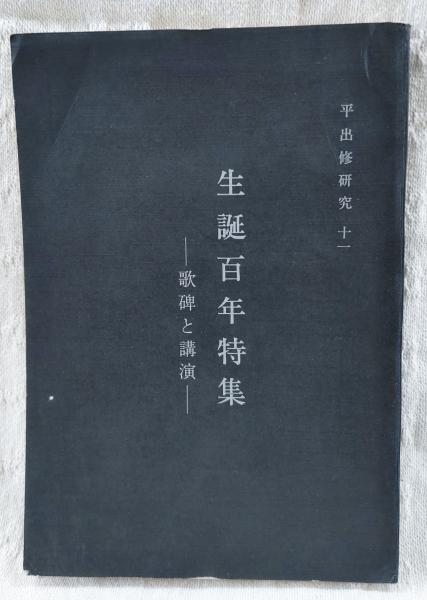 平出修研究 十一
生誕百年特集
―歌碑と講演―